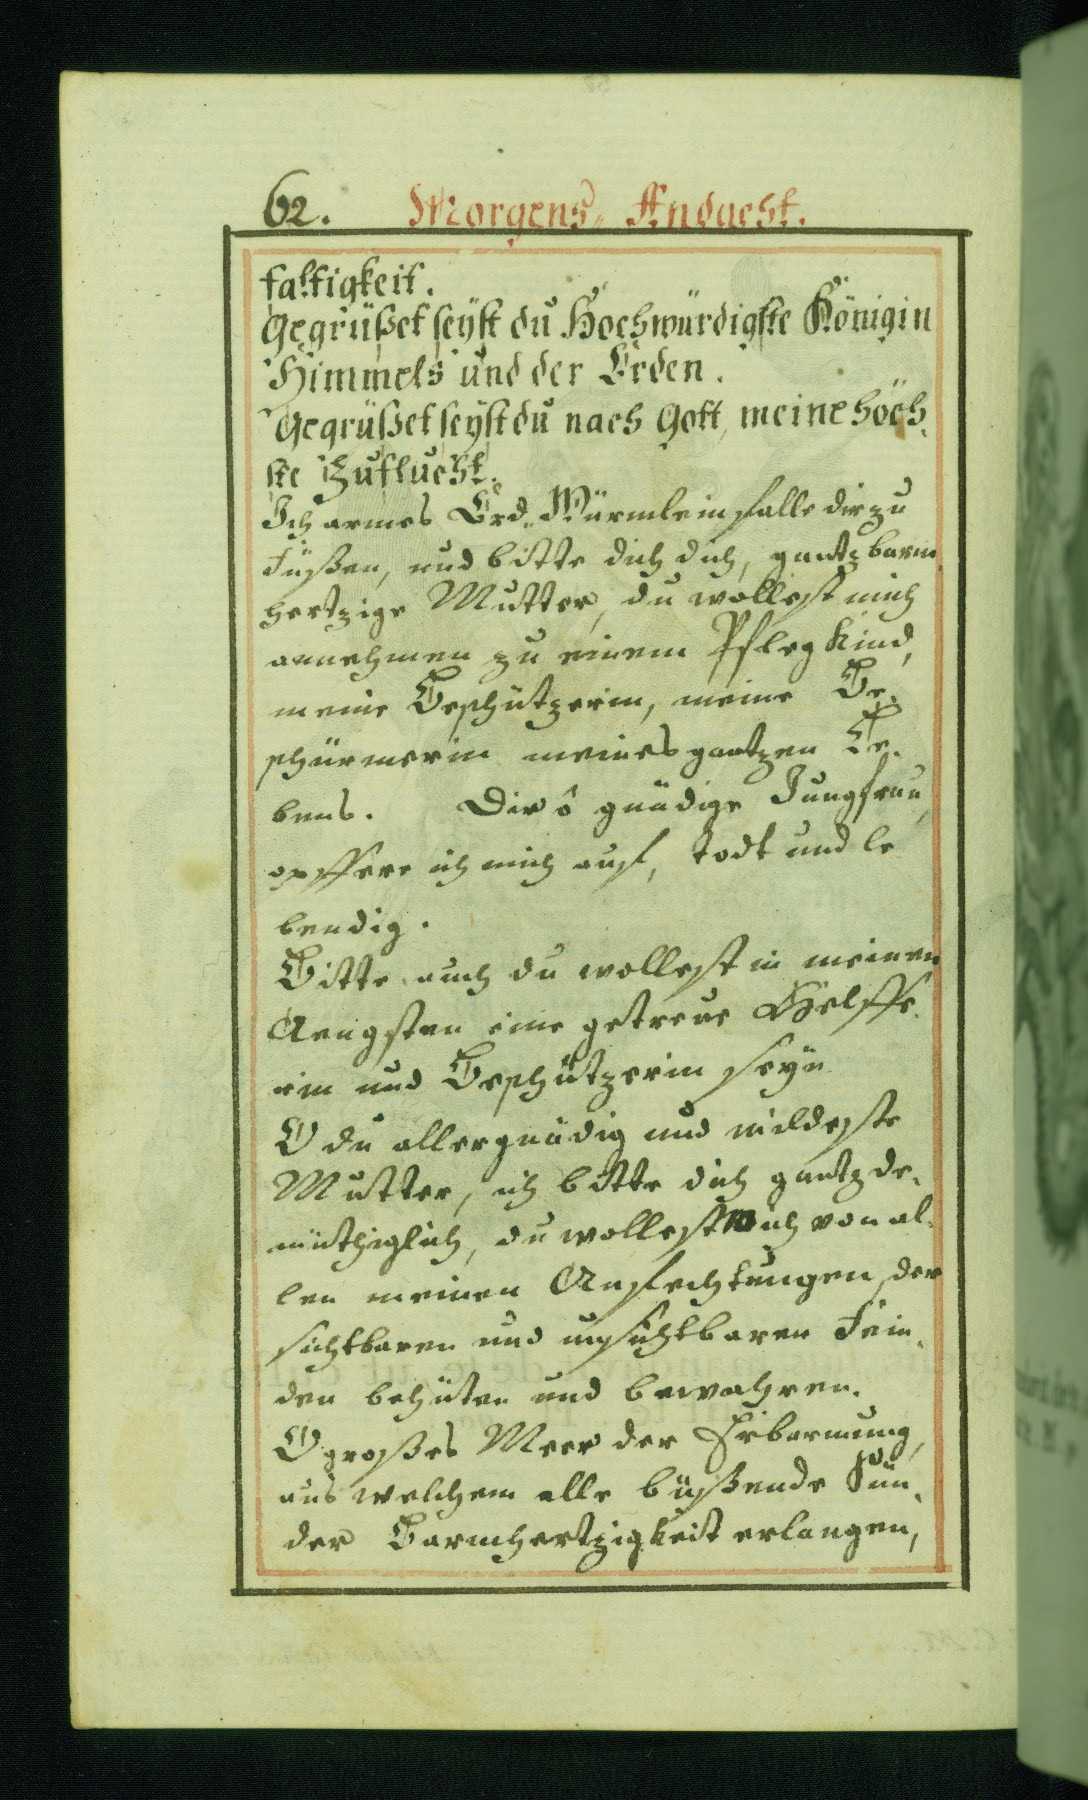 62. Morgens„ Andacht.
faltigkeit.
Gegrüßet seyst du Hochwürdigste Königin
Himmels und der Erden.
Gegrüßet seyst du nach Gott, meine höch„
ste Zuflucht.
Ich armes Erd„Würmlein falle dir zu
Füßen, und bitte dich dich, gantz barm„
hertzige Mutter, du wollest mich
annehmen zu einem Pfleg Kind,
meine Beschützerin, meine Be„
schürmerin meines gantzen Le„
bens. Dir ô gnädige Jungfrau,
opffere ich mich auf, todt und le
bendig.
Bitte auch du wollest in meinen
Aengsten eine getreue Helffe„
rin und Beschützerin seyn
O du allergnädig und mildeste
Mutter, ich bitte dich gantz de„
müthiglich, du wollest mich von al„
len meinen Anfechtungen, der
sichtbaren und unsichtbaren Fein„
den behüten und bewahren.
O großes Meer der Erbarmung,
aus welchem alle büßende Sün„
der Barmhertzigkeit erlangen,